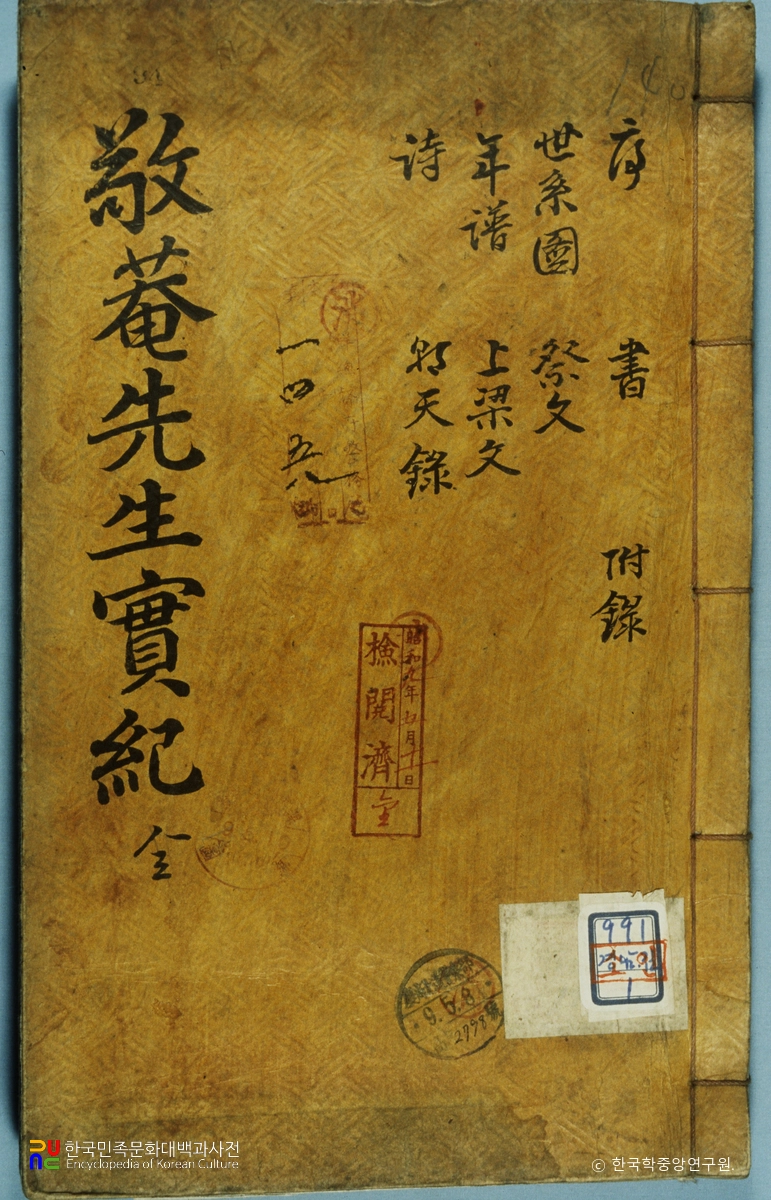 序 書 附錄
世系圖 祭文
年譜 上梁文
詩 朝天錄
一四五八
敬菴先生實紀 全
昭和九年七月十一日
檢閱濟
991
1
9.6.8
2798
한국민족문화대백과사전
Encyclopedia of Korean Culture
© 한국학중앙연구원